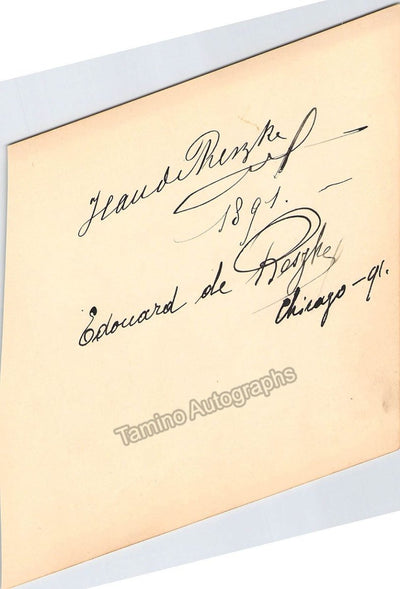 Jean de Reszke
1891. —
Edouard de Reszke
Chicago - 91.
Tamino Autographs